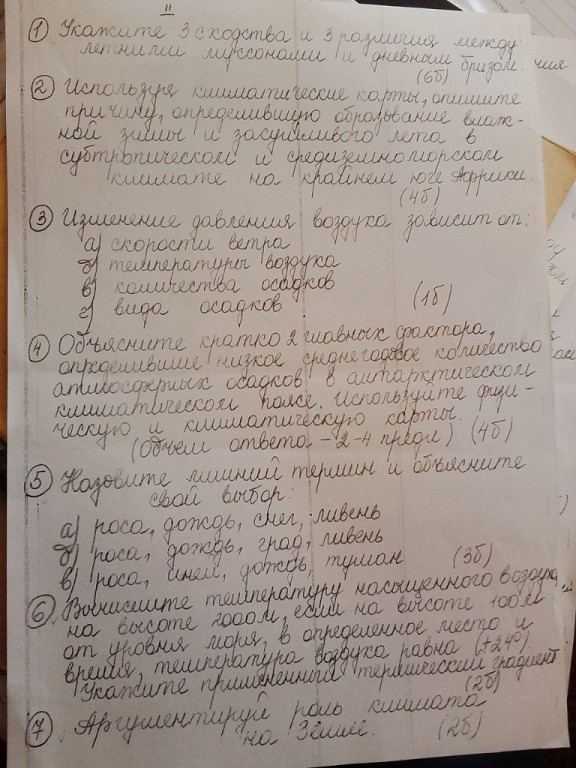 II
1 Укажите 3 сходства и 3 различия между
летними муссонами и дневным бризом.
(6б).
2 Используя климатические карты, опишите
причину, определившую образование влаж-
ной зимы и засушливого лета в
субтропическом и средиземноморском
климате на крайнем юге Африки.
(4б)
3 Изменение давления воздуха зависит от:
а) скорости ветра
б) температуры воздуха
в) количества осадков
г) вида осадков (1б)
4 Объясните кратко 2 главных фактора,
определившие низкое среднегодовое количество
атмосферных осадков в антарктическом
климатическом поясе. Используйте физи-
ческую и климатическую карты.
(Объем ответа - 2-4 предл) (4б)
5 Назовите лишний термин и объясните
свой выбор:
а) роса, дождь, снег, ливень
б) роса, дождь, град, ливень
в) роса, иней, дождь, туман (3б)
6 Вычислите температуру насыщенного воздуха
на высоте 2000м, если на высоте 100м
от уровня моря, в определенное место и
время, температура воздуха равна (+24°).
Укажите примененный термический градиент
(2б)
7 Аргументируй роль климата
на Земле. (2б)